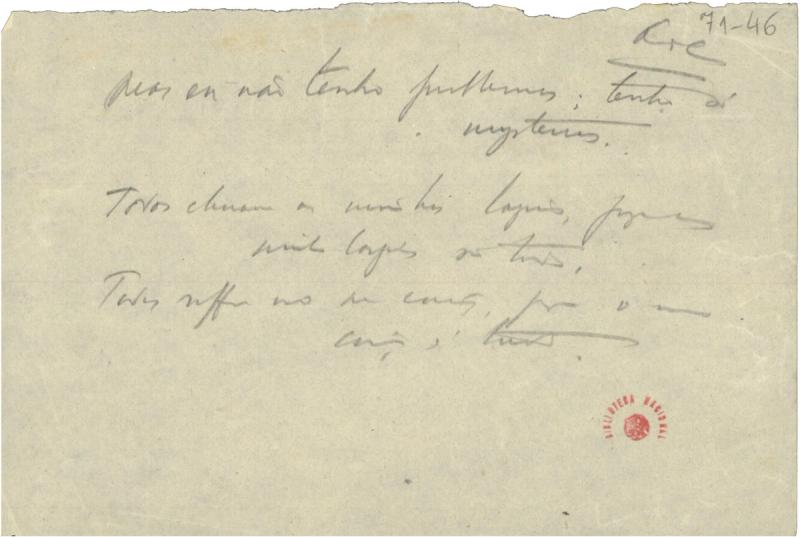 71-46
A. de C.
Mas eu não tenho problemas; tenho só
mysterios.
Todos choram as minhas lagrimas, porque as
minhas lagrimas são todos,
Todos soffrem no meu coração, porque o meu
coração é tudo.
BIBLIOTECA NACIONAL